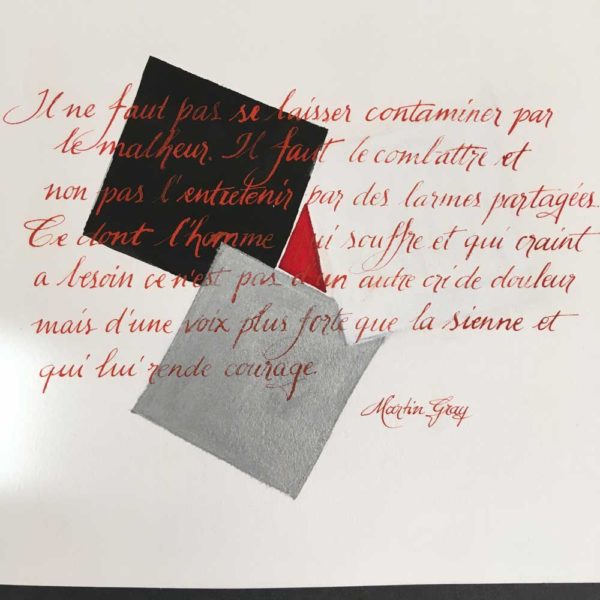 Il ne faut pas se laisser contaminer par
le malheur. Il faut le combattre et
non pas l'entretenir par des larmes partagées.
Ce dont l'homme qui souffre et qui craint
a besoin ce n'est pas d'un autre cri de douleur
mais d'une voix plus forte que la sienne et
qui lui rende courage.
Martin Gray